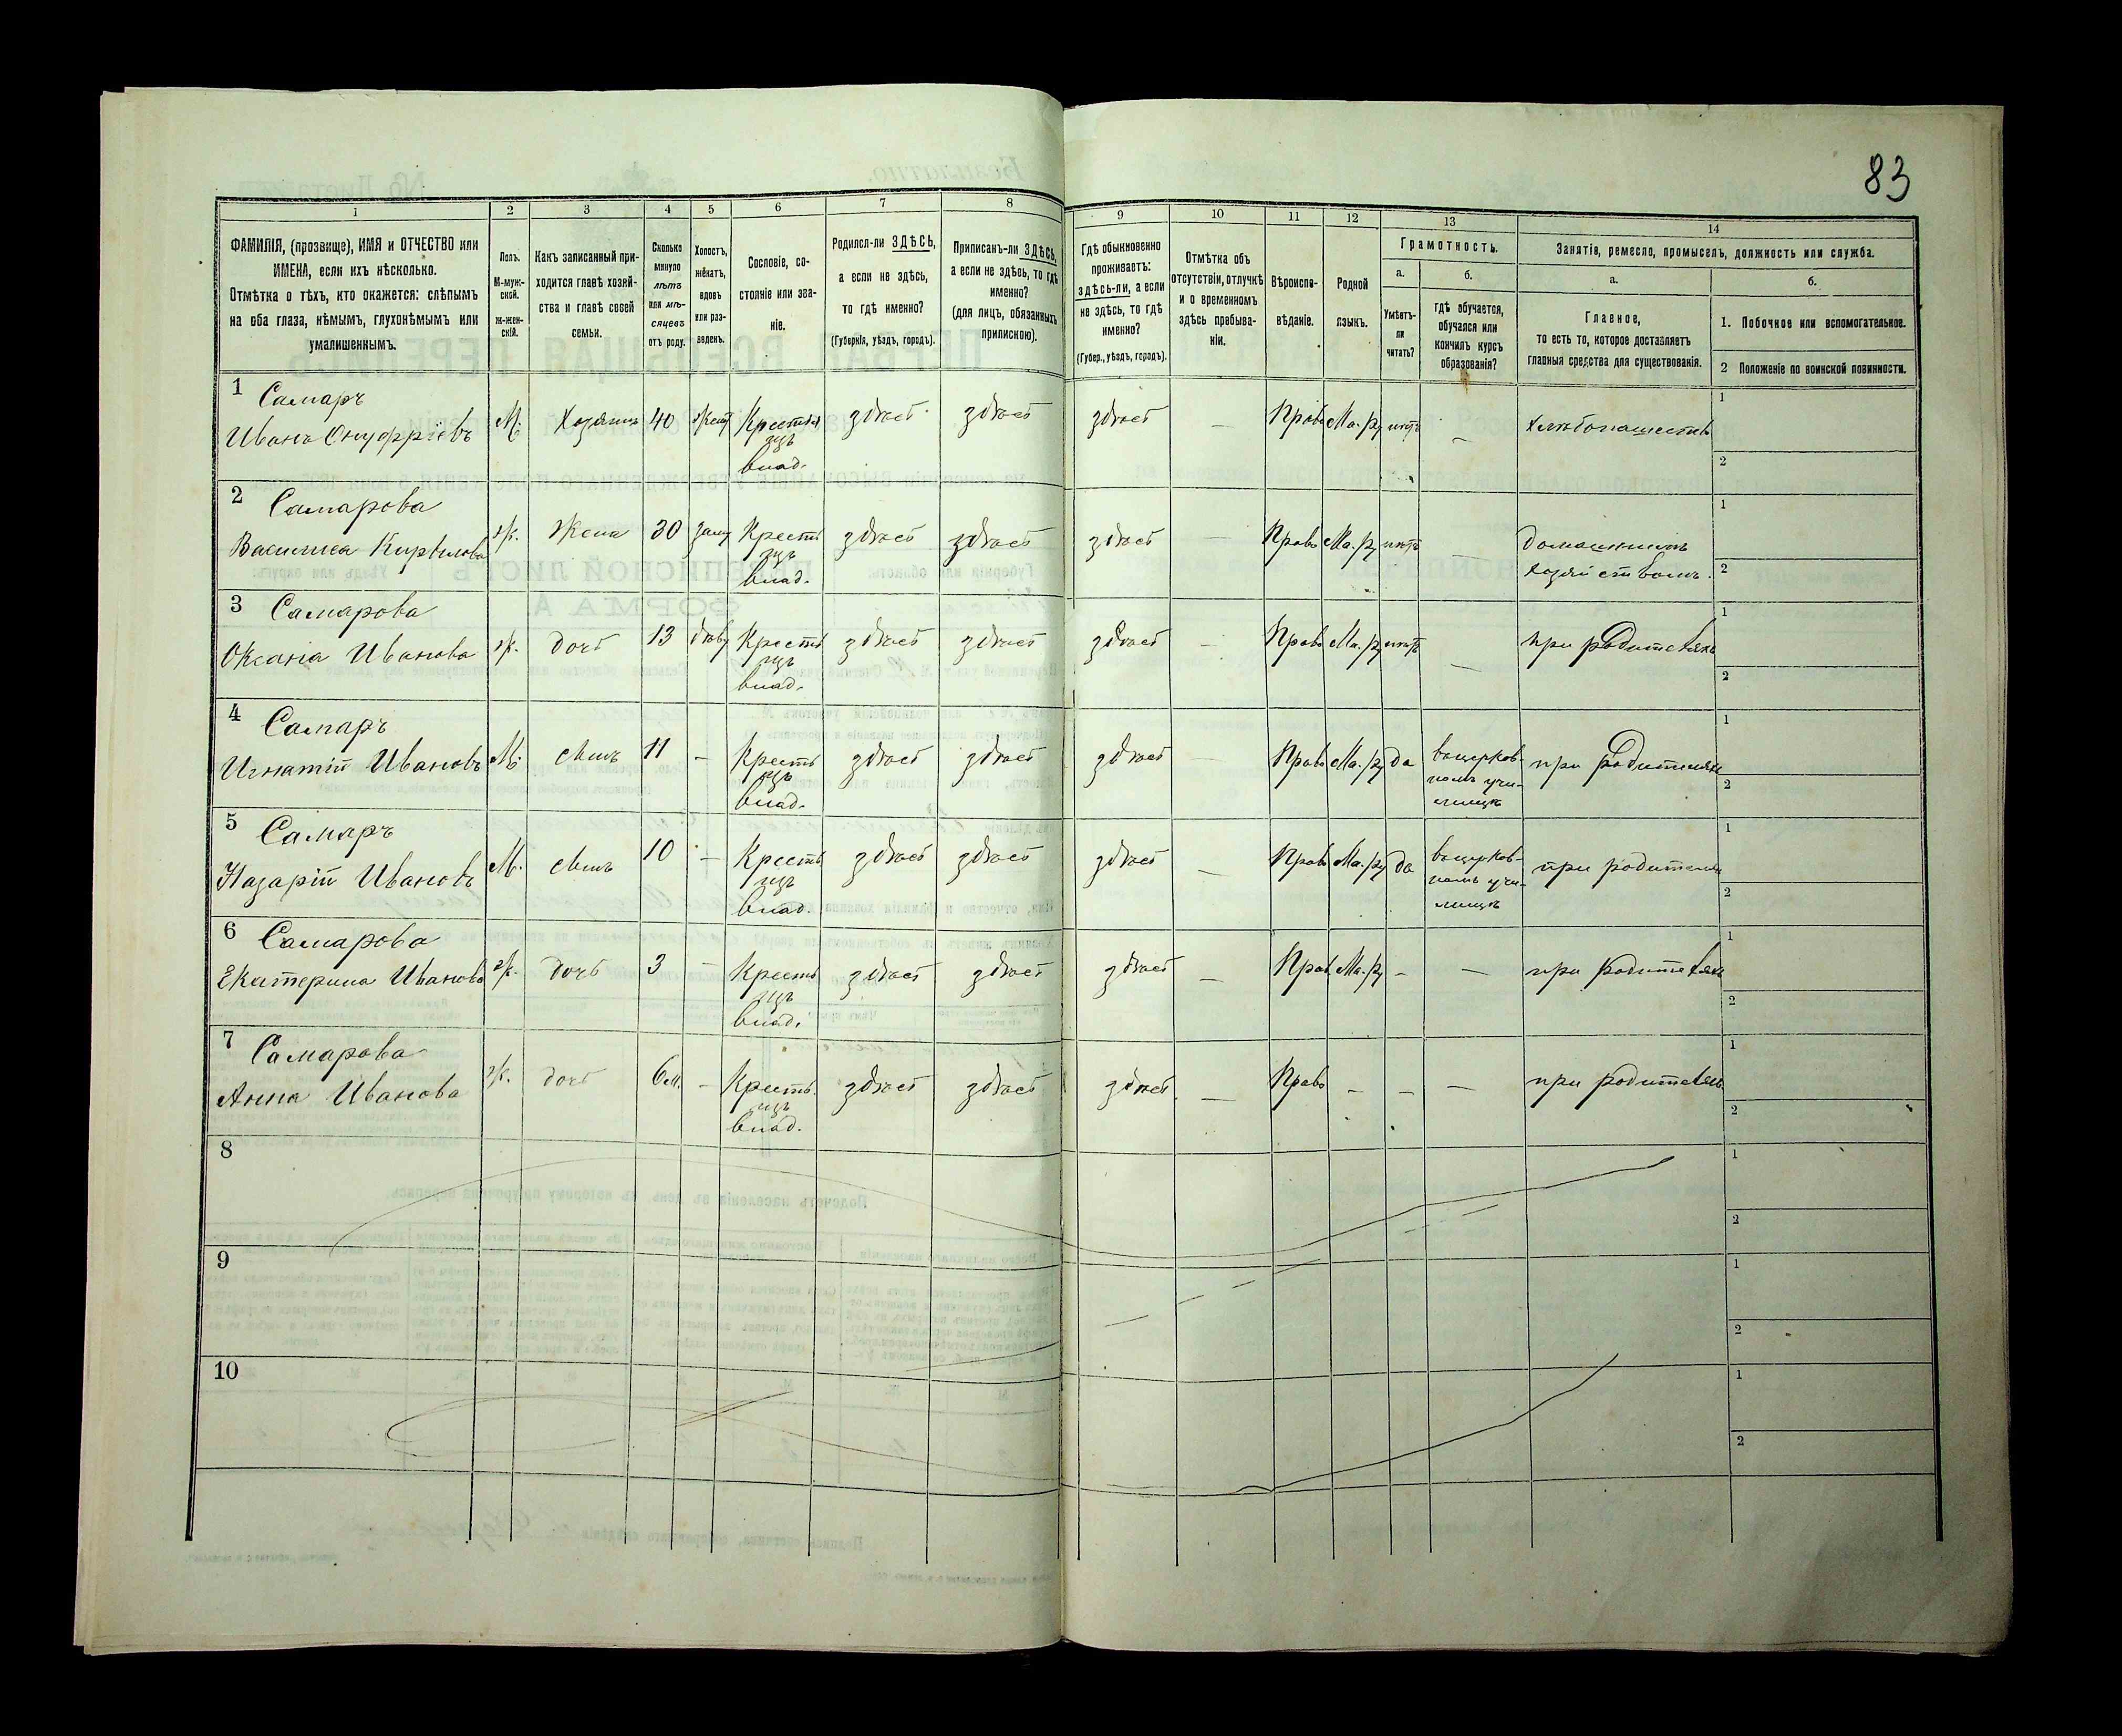 83
1 2 3 4 5 6 7 8 9 10 11 12 13 14
ФАМИЛІЯ, (прозвище), ИМЯ и ОТЧЕСТВО или
ИМЕНА, если ихъ нѣсколько.
Отмѣтка о тѣхъ, кто окажется: слѣпымъ
на оба глаза, нѣмымъ, глухонѣмымъ или
умалишеннымъ.
Полъ.
М-муж-
ской.
Ж-жен-
скій.
Какъ записанный при-
ходится главѣ хозяй-
ства и главѣ своей
семьи.
Сколько
минуло
лѣтъ
или мѣ-
сяцевъ
отъ роду.
Холостъ,
жёнатъ,
вдовъ
или раз-
веденъ.
Сословіе, со-
стояніе или зва-
ніе.
Родился-ли ЗДѢСЬ,
а если не здѣсь,
то гдѣ именно?
(Губернія, уѣздъ, городъ).
Приписанъ-ли ЗДѢСЬ,
а если не здѣсь, то гдѣ
именно?
(для лицъ, обязанныхъ
припискою).
Гдѣ обыкновенно
проживаетъ:
здѣсь-ли, а если
не здѣсь, то гдѣ
именно?
(Губер., уѣздъ, городъ).
Отмѣтка объ
отсутствіи, отлучкѣ
и о временномъ
здѣсь пребыва-
ніи.
Вѣроиспо-
вѣданіе.
Родной
языкъ.
Грамотность.
а.
Умѣетъ-
ли
читать?
б.
гдѣ обучается,
обучался или
кончилъ курсъ
образованія?
Занятія, ремесло, промыселъ, должность или служба.
а.
Главное,
то есть то, которое доставляетъ
главныя средства для существованія.
б.
1. Побочное или вспомогательное.
2 Положеніе по воинской повинности.
1 Самаръ
Иванъ Онуфріевъ М. Хозяинъ 40 Крестья здѣсь здѣсь здѣсь — Прав Ма.ру нѣтъ — хлѣбопашество
изъ
влад.
1
2
2 Самарова
Василиса Кирѣлова ж. Жена 30 заму Кресть здѣсь здѣсь здѣсь — Прав Ма.ру нѣтъ — домашнимъ
изъ
влад. хозяйствомъ.
1
2
3 Самарова
Оксана Иванова ж. дочь 13 дѣву Кресть здѣсь здѣсь здѣсь — Прав Ма.ру нѣтъ — при родителяхъ
изъ
влад.
1
2
4 Самаръ
Игнатій Ивановъ М. сынъ 11 — Кресть здѣсь здѣсь здѣсь — Прав Ма.ру да вцерков- при родителяхъ
изъ номъ учи-
влад. лищѣ
1
2
5 Самаръ
Назарій Ивановъ М. сынъ 10 — Кресть здѣсь здѣсь здѣсь — Прав Ма.ру да вцерков- при родителях
изъ номъ учи-
влад. лищѣ
1
2
6 Самарова
Екатерина Иванова ж. дочь 3 — Кресть здѣсь здѣсь здѣсь — Прав Ма.ру — — при родителяхъ
изъ
влад.
1
2
7 Самарова
Анна Иванова ж. дочь 6м. — Кресть здѣсь здѣсь здѣсь — Прав — — — при родителяхъ
изъ
влад.
1
2
8
1
2
9
1
2
10
1
2